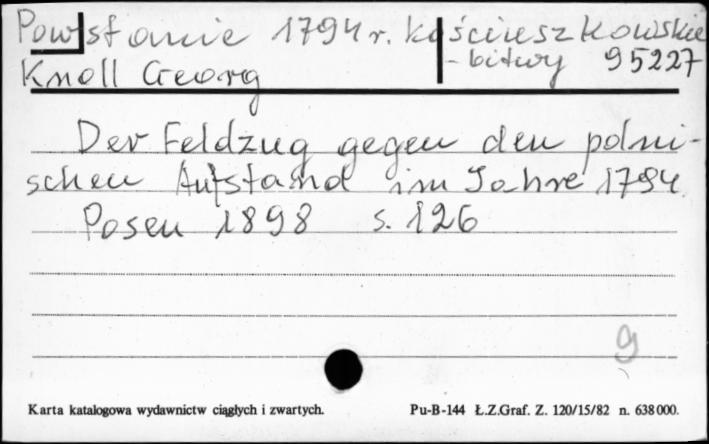 Powstanie 1794 r. Kościuszkowskie
- bitwy 95227
Knoll Georg
Der Feldzug gegen den polni-
schen Aufstand im Jahre 1794.
Posen 1898 s. 126
9
Karta katalogowa wydawnictw ciągłych i zwartych. Pu-B-144 Ł.Z.Graf. Z. 120/15/82 n. 638000.